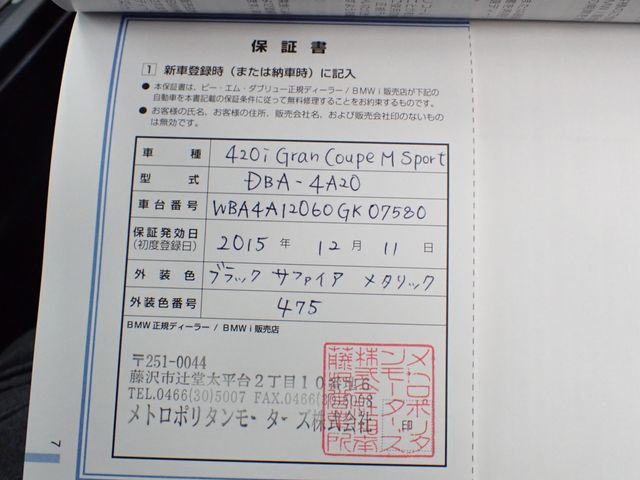 保証書
1 新車登録時（または納車時）に記入
● 本保証書は、ビー・エム・ダブリュー正規ディーラー / BMW i 販売店が下記の
自動車を本書記載の保証条件に従って無料修理することをお約束するものです。
● お客様の氏名、お客様の住所、販売会社名、および販売会社印のないもの
は無効です。
車種 420i Gran Coupe M Sport
型式 DBA-4A20
車台番号 WBA4A12060GK07580
保証発効日
(初度登録日) 2015 年 12 月 11 日
外装色 ブラック サファイア メタリック
外装色番号 475
BMW正規ディーラー / BMW i 販売店
〒251-0044
藤沢市辻堂太平台2丁目10番地6
TEL.0466(30)5007 FAX.0466(30)5008
メトロポリタンモーターズ株式会社
印
7